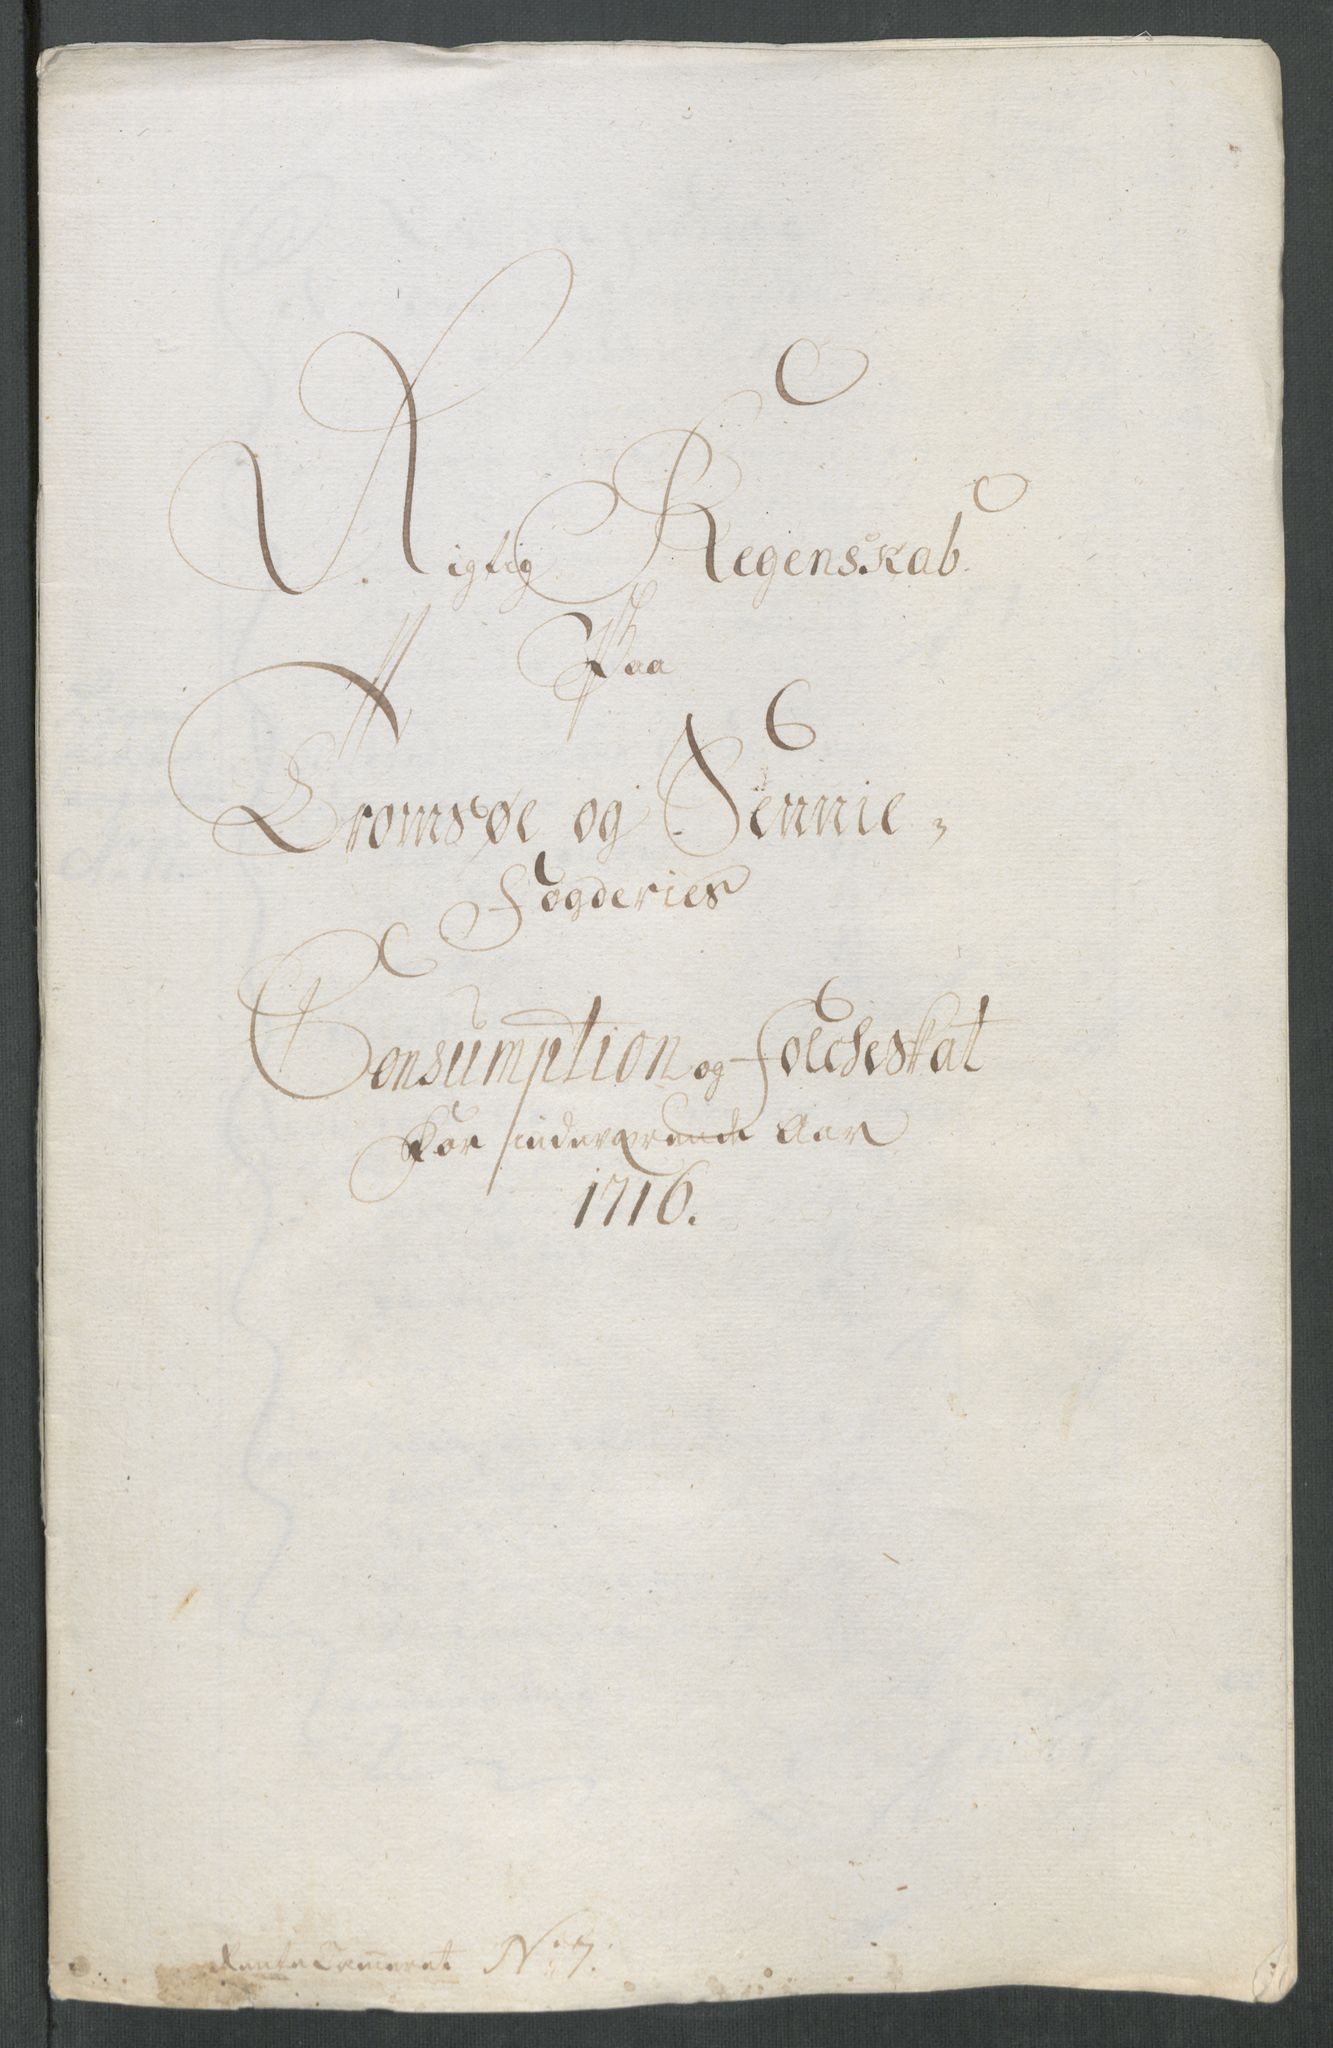 Rigtig Regenskab
Paa
Tromsøe og Sennie,
Fogderies
Consumption og Folcheskat
For indeværende Aar
1716.
Rente Cammeret No 7.